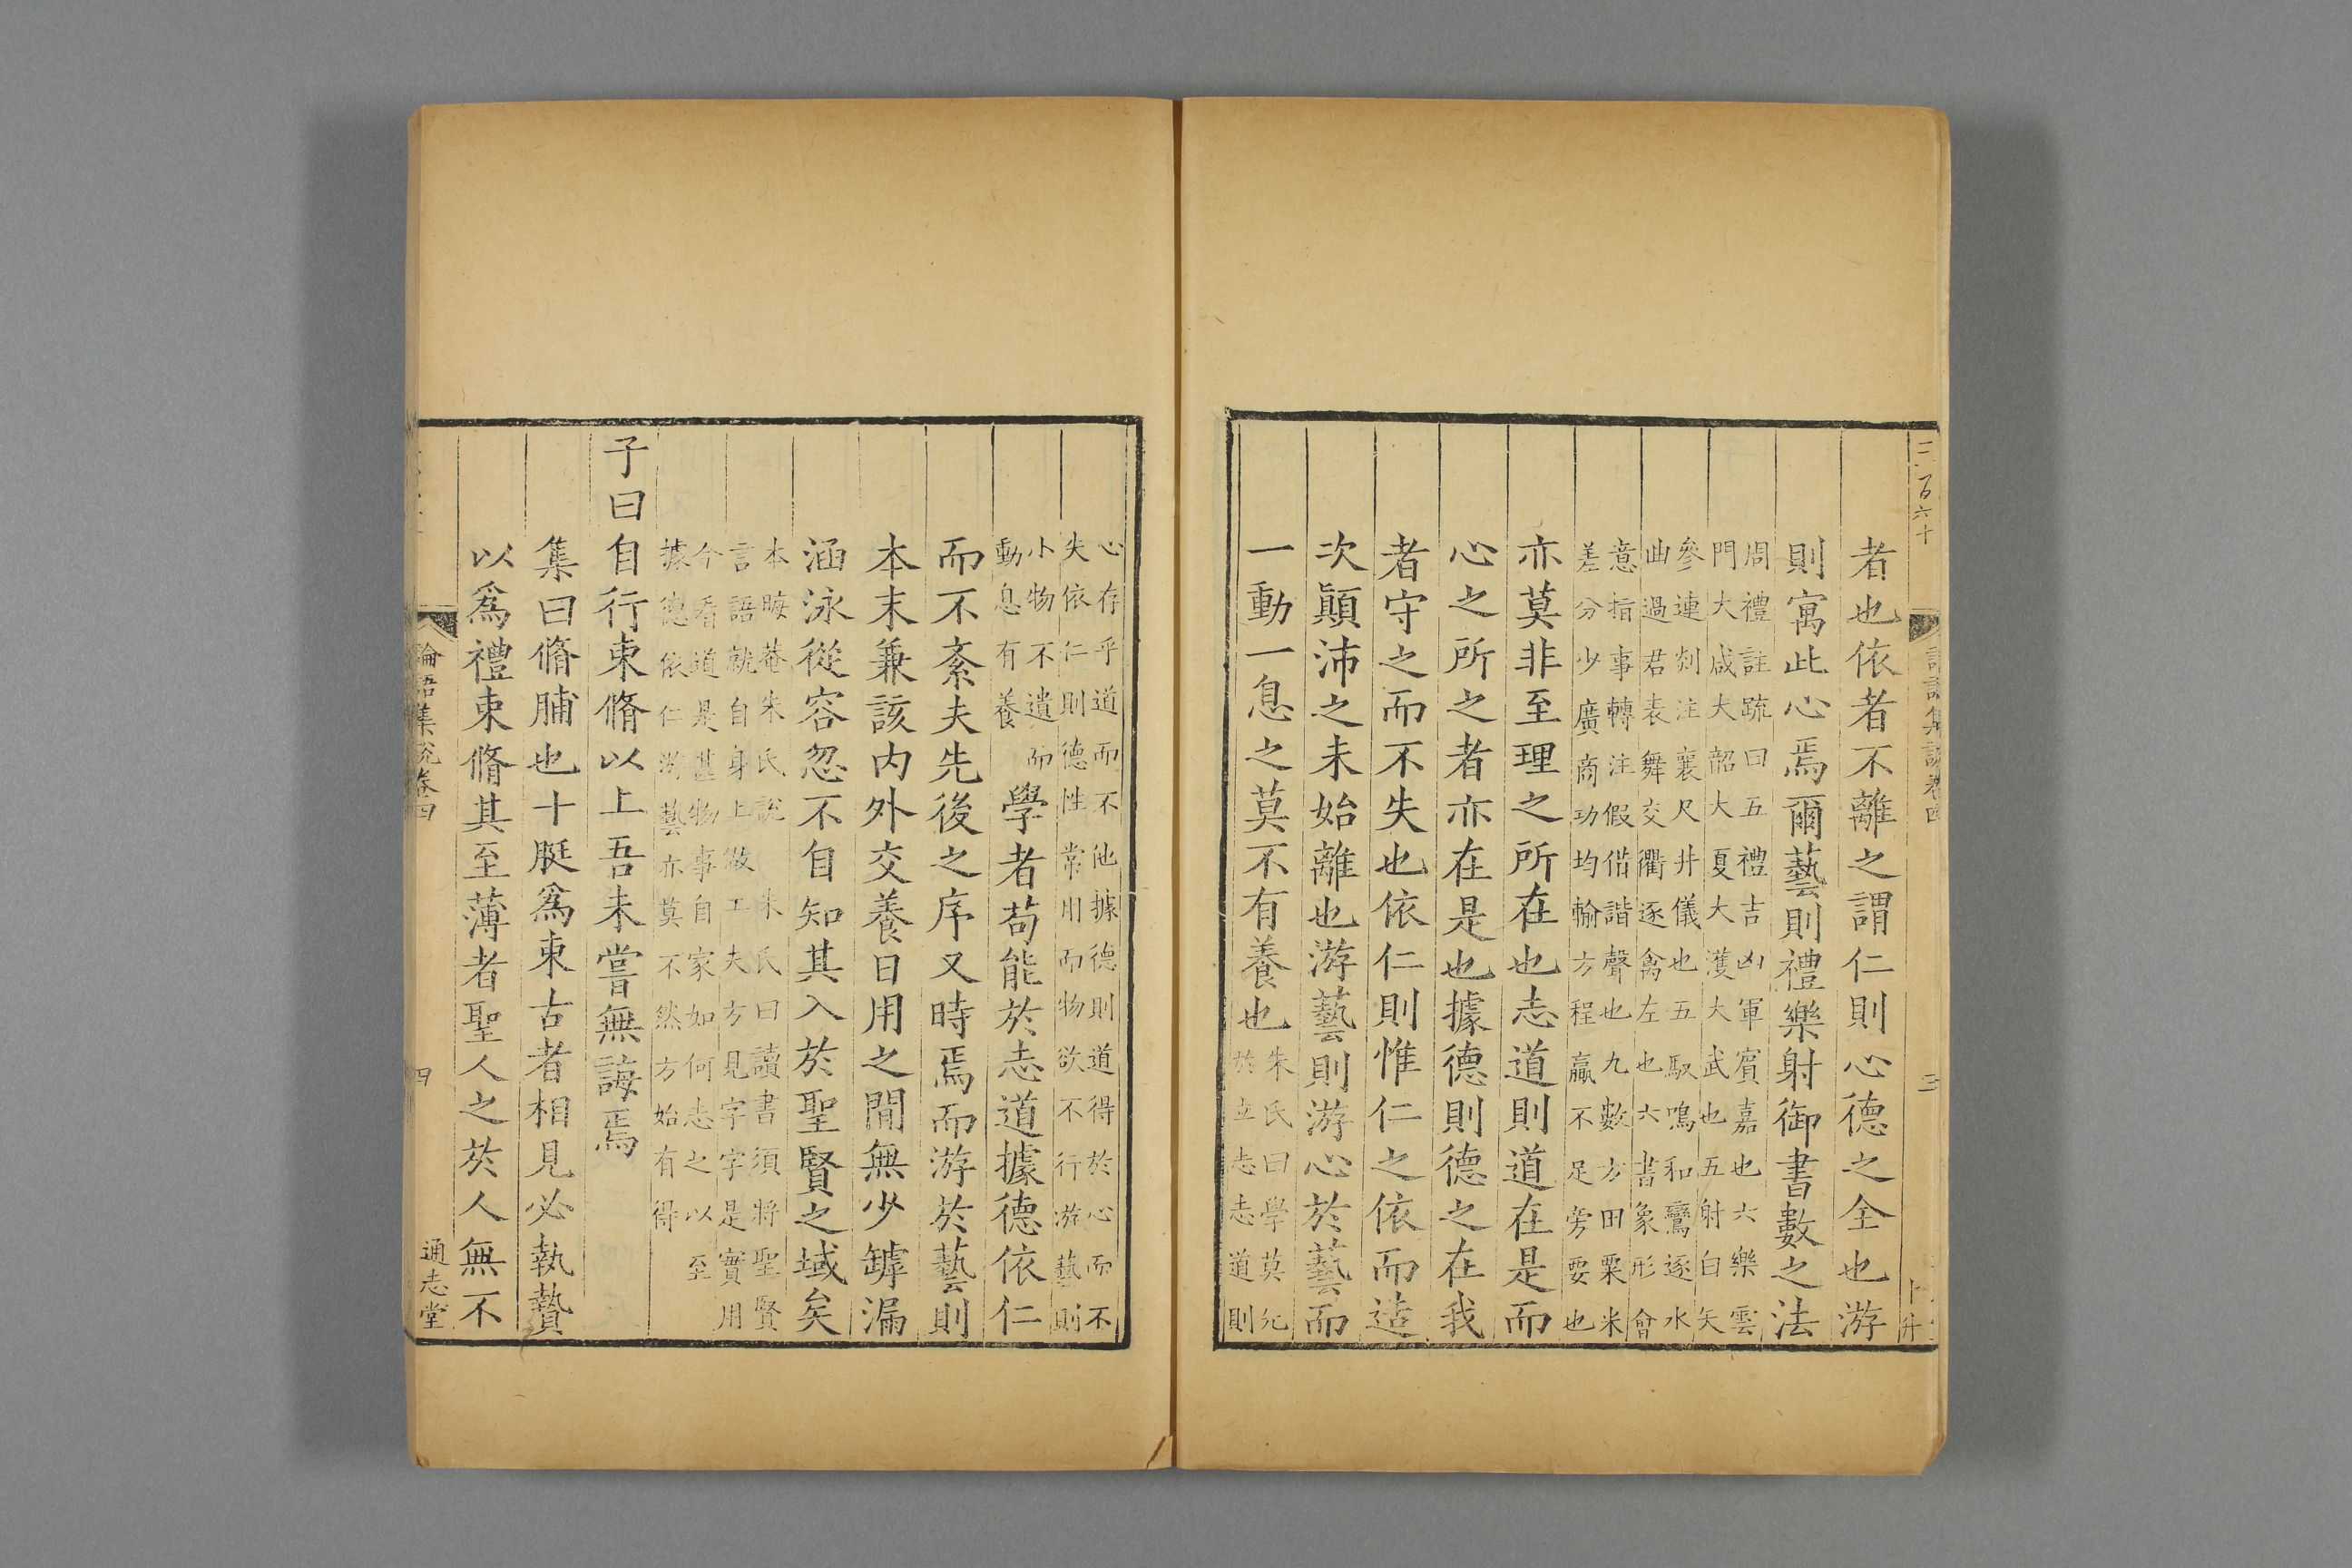 三百六十
論語集說卷四
三
卜升
者也依者不離之謂仁則心德之全也游
則寓此心焉爾藝則禮樂射御書數之法
周禮註疏曰五禮吉凶軍賓嘉也六樂雲
門大咸大韶大夏大濩大武也五射白矢
參連剡注襄尺井儀也五馭鳴和鸞逐水
曲過君表舞交衢逐禽左也六書象形會
意指事轉注假借諧聲也九數方田粟米
差分少廣商功均輸方程贏不足旁要也
亦莫非至理之所在也志道則道在是而
心之所之者亦在是也據德則德之在我
者守之而不失也依仁則惟仁之依而造
次顛沛之未始離也游藝則游心於藝而
一動一息之莫不有養也
朱氏曰學莫先
於立志志道則
心存乎道而不他據德則道得於心而不
失依仁則德性常用而物欲不行游藝則
小物不遺而
動息有養
學者苟能於志道據德依仁
而不紊夫先後之序又時焉而游於藝則
本末兼該內外交養日用之間無少罅漏
涵泳從容忽不自知其入於聖賢之域矣
本晦菴朱氏說 朱氏曰讀書須將聖賢
言語就自身上做工夫方見字字是實用
今看道是甚物事自家如何志之以至
據德依仁游藝亦莫不然方始有得
子曰自行束脩以上吾未嘗無誨焉
集曰脩脯也十脡爲束古者相見必執贄
以爲禮束脩其至薄者聖人之於人無不
論語集說卷四
四
通志堂